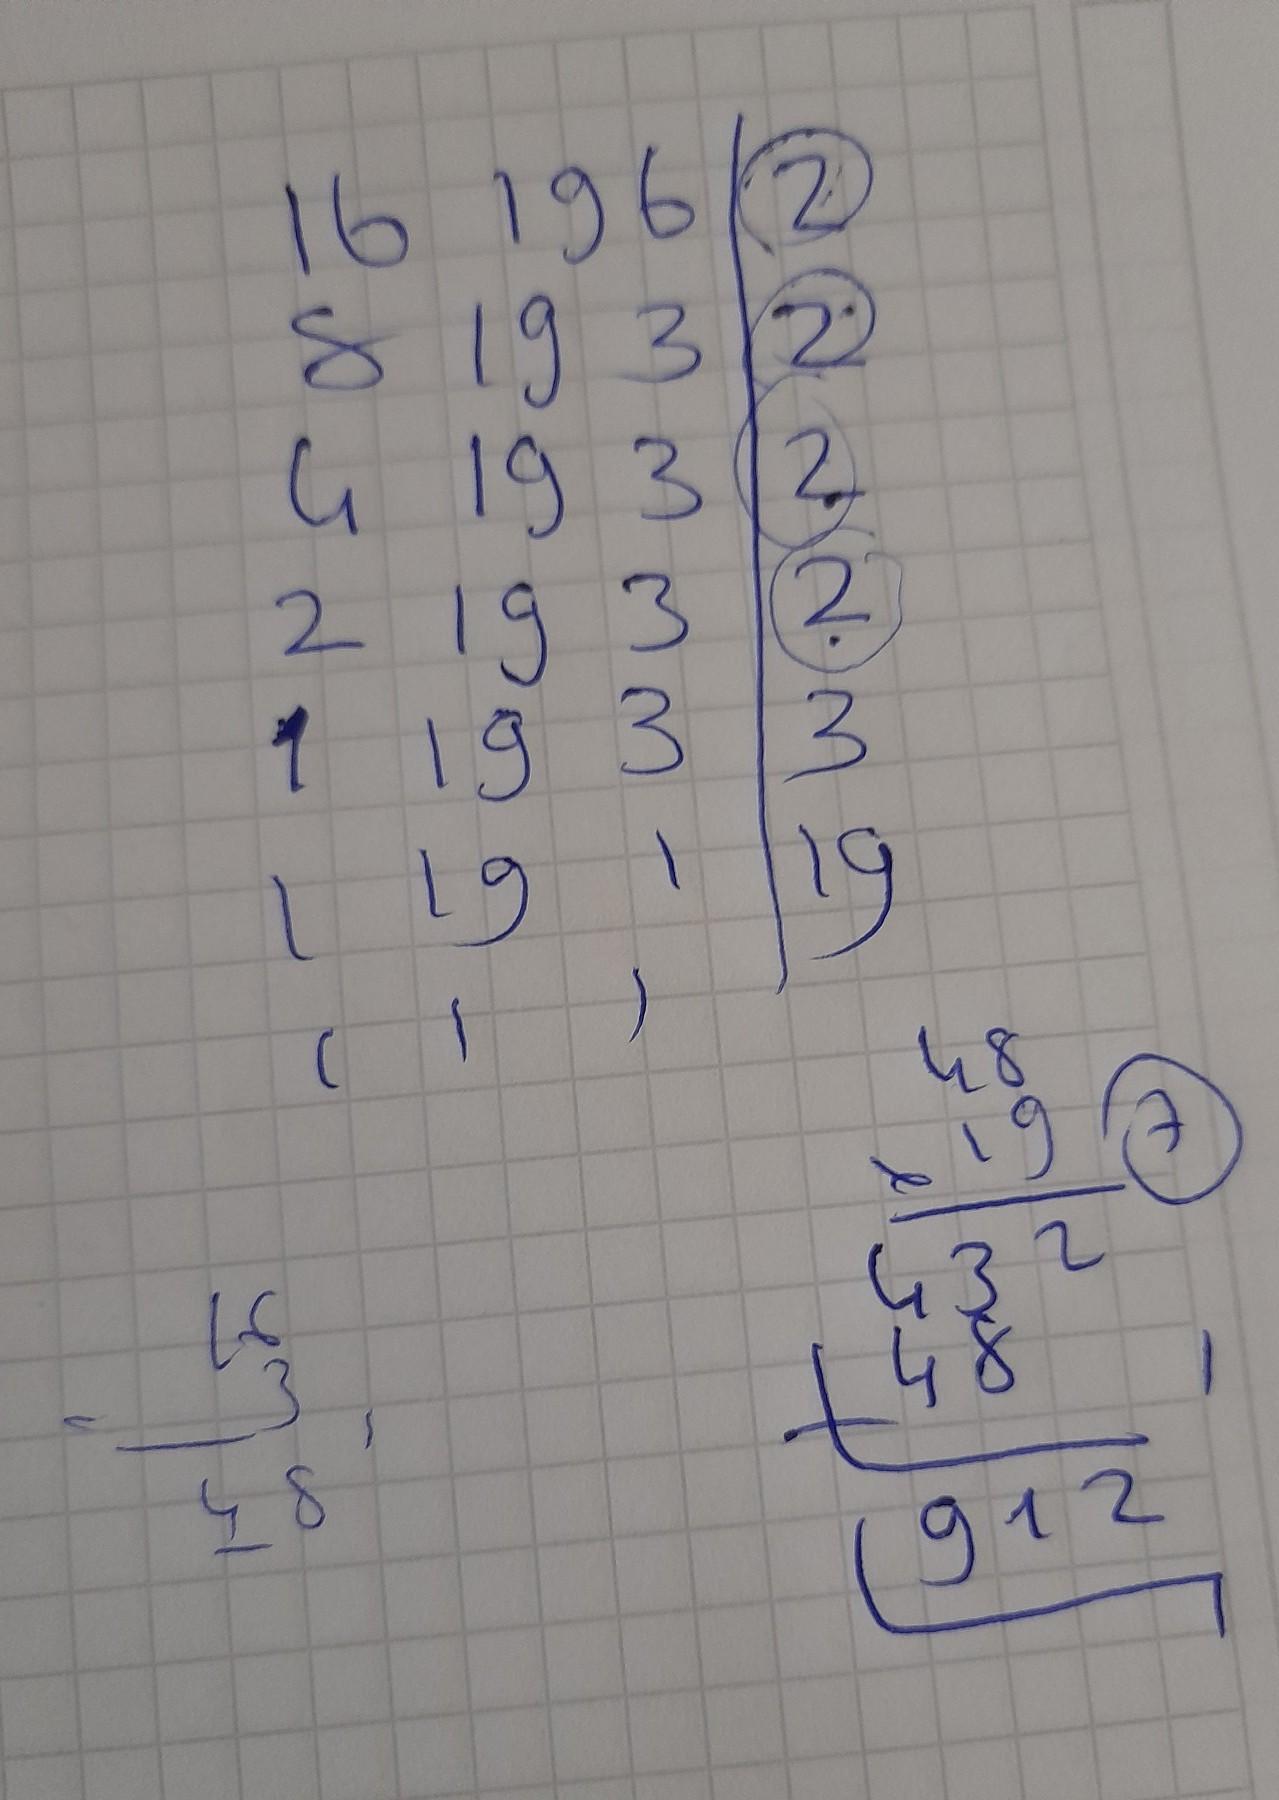 16 19 6 | 2
8 19 3 | 2
4 19 3 | 2
2 19 3 | 2
1 19 3 | 3
1 19 1 | 19
1 1 1
48
x 19 7
432
48 1
+
912
16
3
48